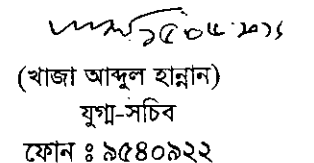 (খাজা আব্দুল হান্নান)
যুগ্ম-সচিব
ফোন ঃ ৯৫৪০৯২২